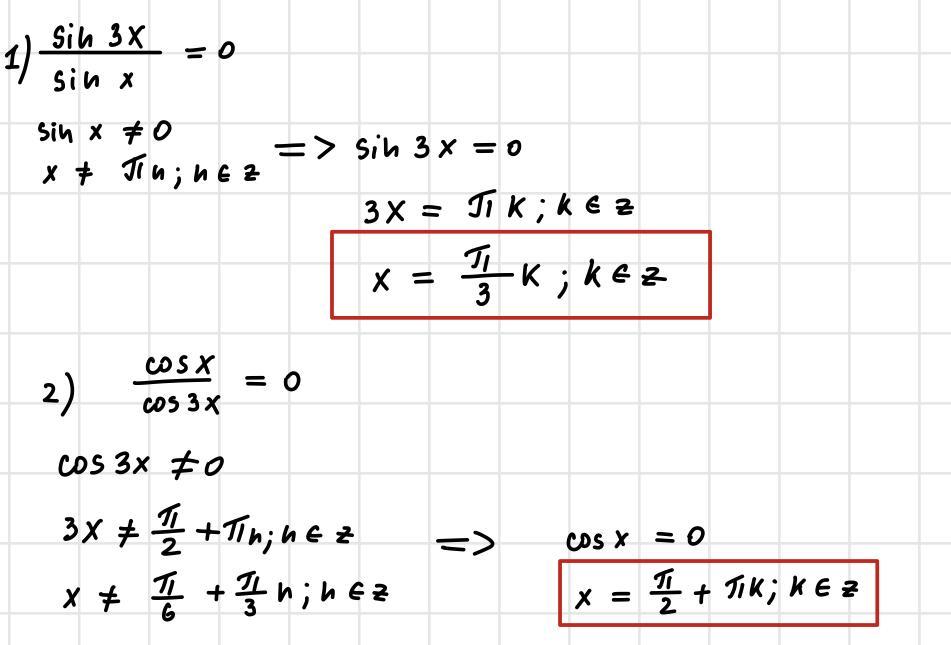 1) sin 3x / sin x = 0
sin x ≠ 0
x ≠ πn; n ∈ z => sin 3x = 0
3x = πk; k ∈ z
x = π/3 k; k ∈ z
2) cos x / cos 3x = 0
cos 3x ≠ 0
3x ≠ π/2 + πn; n ∈ z => cos x = 0
x ≠ π/6 + π/3 n; n ∈ z
x = π/2 + πk; k ∈ z